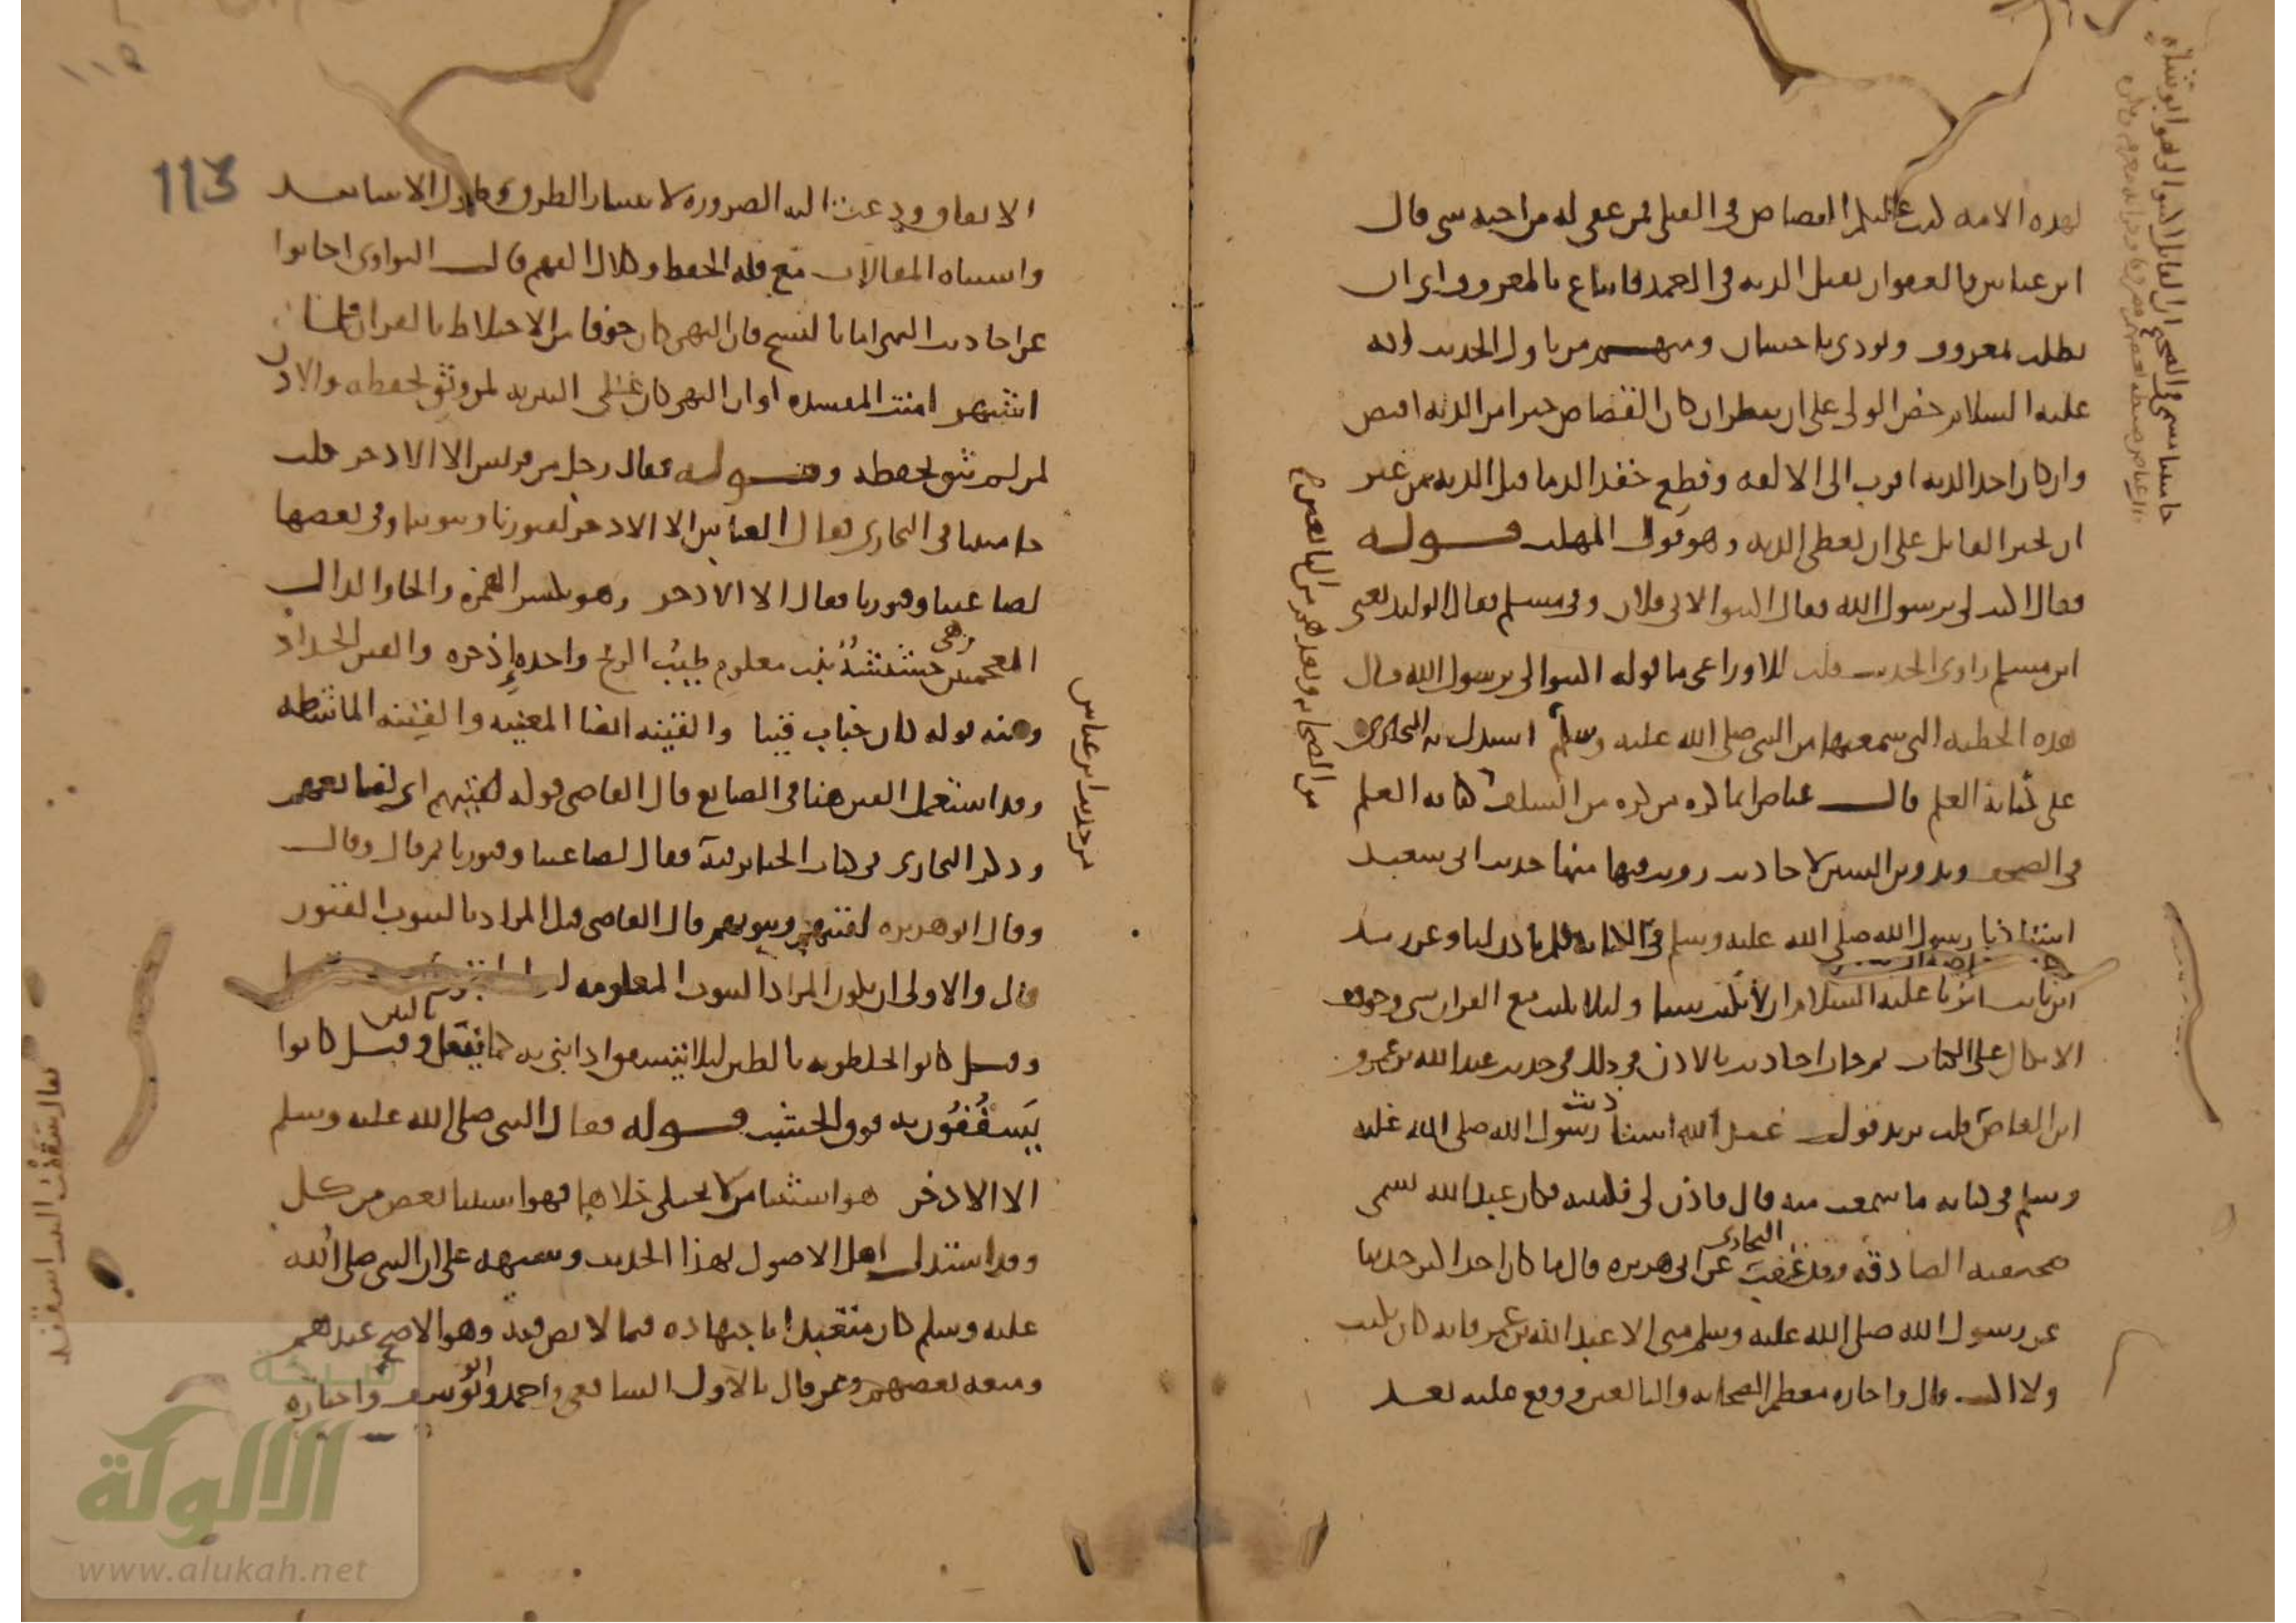 لهذه الامه كتب عليكم القصاص في القتلى فمن عفي له من اخيه شي قال
ابن عباس فالعفو ان يقبل الديه في العمد فاتباع بالمعروف اي ان
يطلب بمعروف ويودي باحسان ومنهم من ياول الحديث وانه
عليه السلام حض الولي على ان ينظر ان كان القصاص خيرا من الديه اقتص
وان كان اخذ الديه اقرب الى الالفه وقطع حقد الدما قبل الديه من غير
ان يجبر القاتل على ان يعطى الديه وهو قول المهلب قوله
فقال اكتب لي يرسول الله فقال اكتبوا لابي فلان وفي مسلم فقال الوليد يعني
ابن مسلم راوي الحديث قلت للاوزاعي ما قوله اكتبوا لي يرسول الله قال
هذه الخطبه التي سمعها من النبي صلى الله عليه وسلم استدل به البخاري
على كتابة العلم قال عياض انما كره من كره من السلف كتابه العلم
في الصحف وتدوين السنن لاحاديث رويت فيها منها حديث ابي سعيد
استاذنا رسول الله صلى الله عليه وسلم في الكتابه فلم ياذن لنا وعن زيد
ابن ثابت امرنا عليه السلام ان لا نكتب شيا وليلا يكتب مع القران شي وخوف
الاتكال على الكتاب ثم جات احاديث بالاذن في ذلك في حديث عبد الله بن عمرو
ابن العاص قلت يريد قول عبد الله استاذنت رسول الله صلى الله عليه
وسلم في كتابه ما سمعت منه قال فاذن لي فكتبته فكان عبد الله يسمي
صحيفته الصادقه وقد عقبت البخاري عن ابي هريره قال ما كان احد اكثر حديثا
عن رسول الله صلى الله عليه وسلم مني الا عبد الله بن عمرو فانه كان يكتب
ولا اكتب قال واجازه معظم الصحابه والتابعين ووقع عليه بعد
من الصحابه وبعدهم من التابعين
113
الاتفاق ودعت اليه الضروره لانتشار الطرق وطول الاسانيد
واشتباه المقالات مع قله الحفظ وكلال الفهم قال النواوي اجابوا
عن احاديث النهي اما بالنسخ فان النهي كان خوفا من الاختلاط بالقران فلما
اشتهر امنت المفسده او ان النهي كان على التنزيه لمن وثق بحفظه والاذن
لمن لم يثق بحفظه وقوله فقال رجل من قريش الا الاذخر قلت
جا مبينا في البخاري فقال العباس الا الاذخر لقبورنا وبيوتنا وفي بعضها
لصاغتنا وقبورنا فقال الا الاذخر وهو بكسر الهمزه والخا والذال
المعجمتين وهي حشيشة نبت معلوم طيب الريح واحده إذخره والقين الحداد
ومنه قوله كان خباب قينا والقينه ايضا المغنيه والقينه الماشطه
وقد استعمل القين هنا في الصايغ قال القاضي قوله لقينهم اي لقبانهم
وذكر البخاري في كتاب الجنايز فيه فقال لصاغتنا وقبورنا ثم قال وقال
وقال ابو هريره لقينهم وبيوتهم قال القاضي قيل المراد بالبيوت القبور
قال والاولى ان يكون المراد البيوت المعلومه
وقيل كانوا يخلطونه بالطين ليلا يتشقق اذا بني به كما يفعل بالتبن وقيل كانوا
يَسقُفُون به فوق الخشب قوله فقال النبي صلى الله عليه وسلم
الا الاذخر هو استثنا من لا يختلى خلاها فهو استثنا بعض من كل
وقد استدل اهل الاصول بهذا الحديث وشبهه على ان النبي صلى الله
عليه وسلم كان متعبدا باجتهاده فيما لا نص فيه وهو الاصح عندهم
ومنعه بعضهم وممن قال بالاول الشافعي واحمد وابو يوسف واختاره
من حديث ابن عباس
الالوكة
www.alukah.net